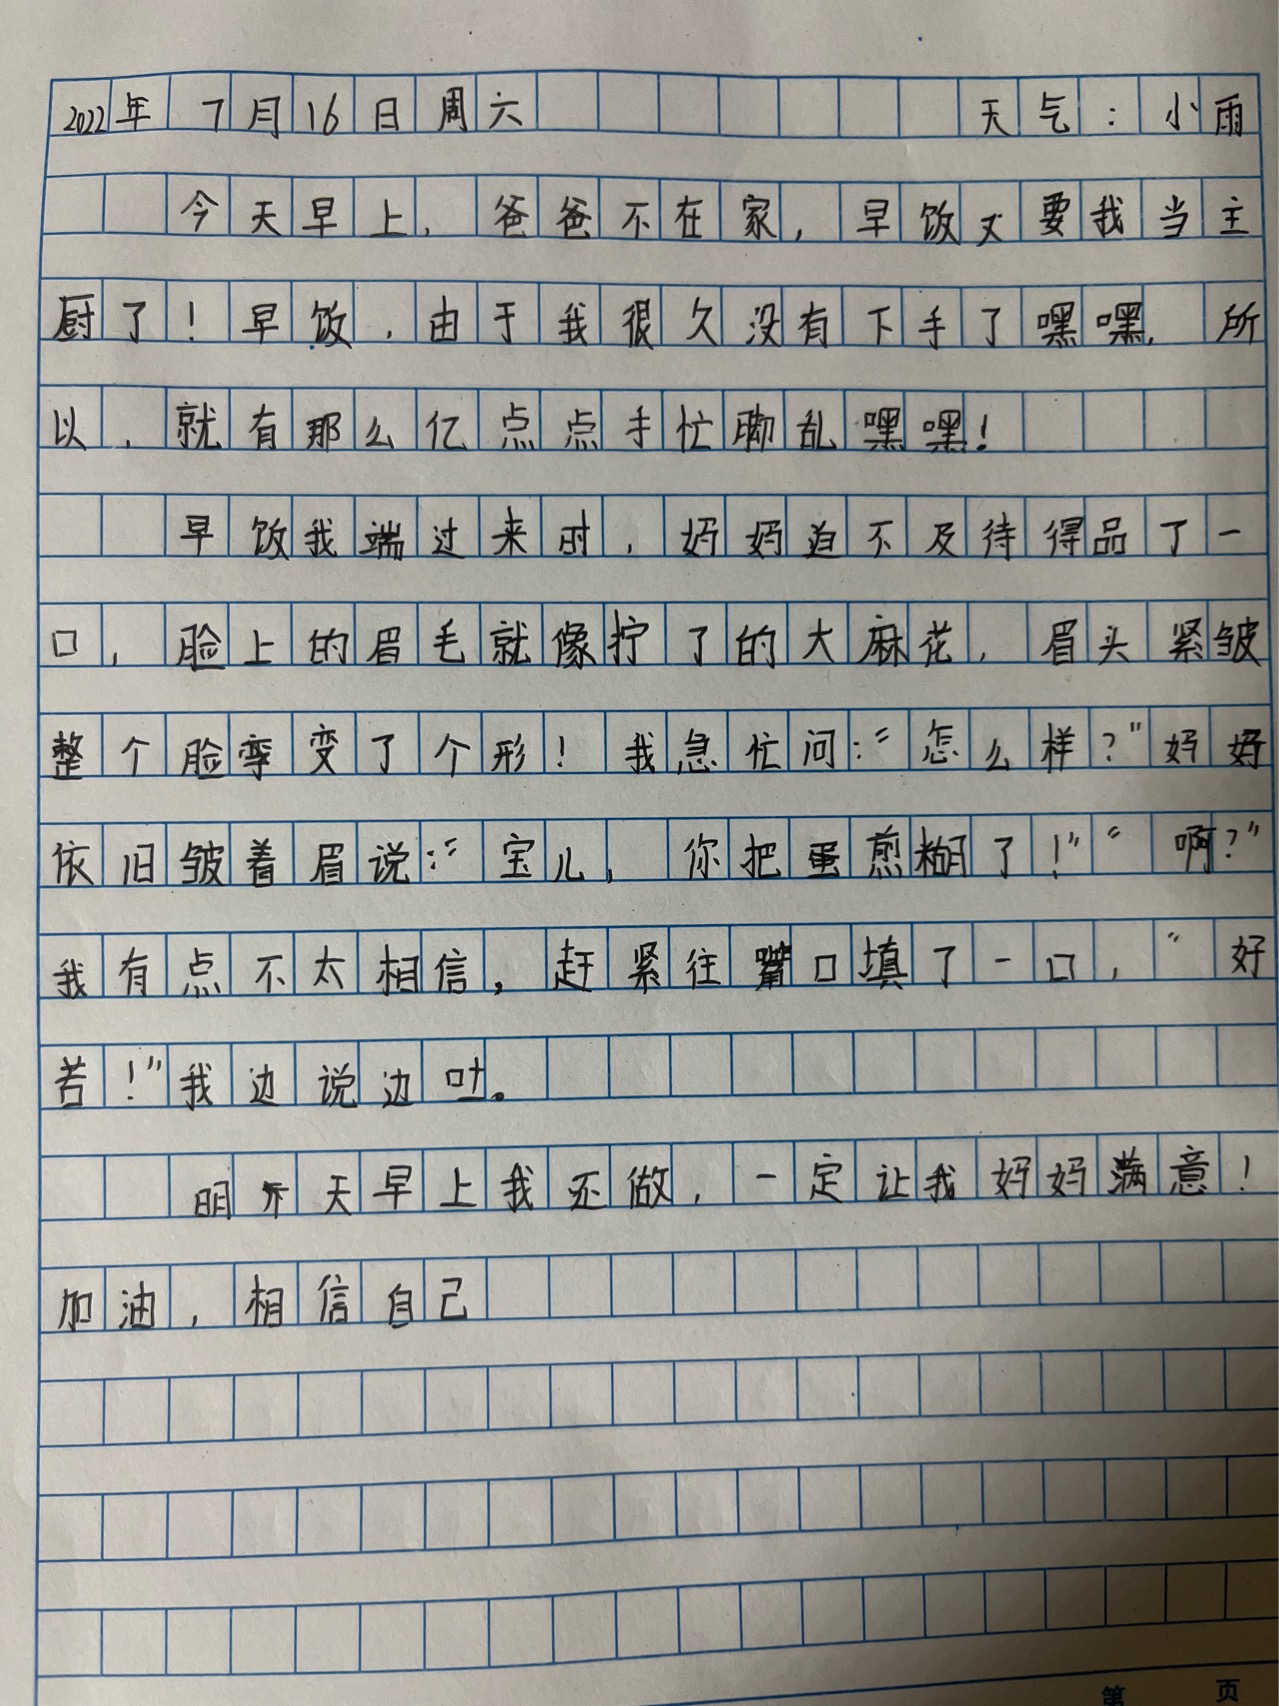 2022年7月16日周六 天气：小雨
今天早上，爸爸不在家，早饭又要我当主
厨了！早饭，由于我很久没有下手了嘿嘿，所
以，就有那么亿点点手忙脚乱嘿嘿！
早饭我端过来时，妈妈迫不及待得品了一
口，脸上的眉毛就像拧了的大麻花，眉头紧皱
整个脸变了个形！我急忙问：“怎么样？”妈妈
依旧皱着眉说：“宝儿，你把蛋煎糊了！”“啊？”
我有点不太相信，赶紧往嘴口填了一口，“好
苦！”我边说边吐。
明天早上我还做，一定让我妈妈满意！
加油，相信自己
第 页